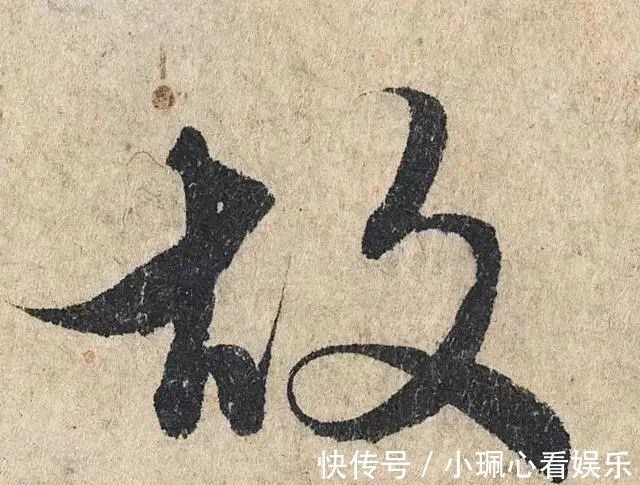 故
快传号/小珮心看娱乐